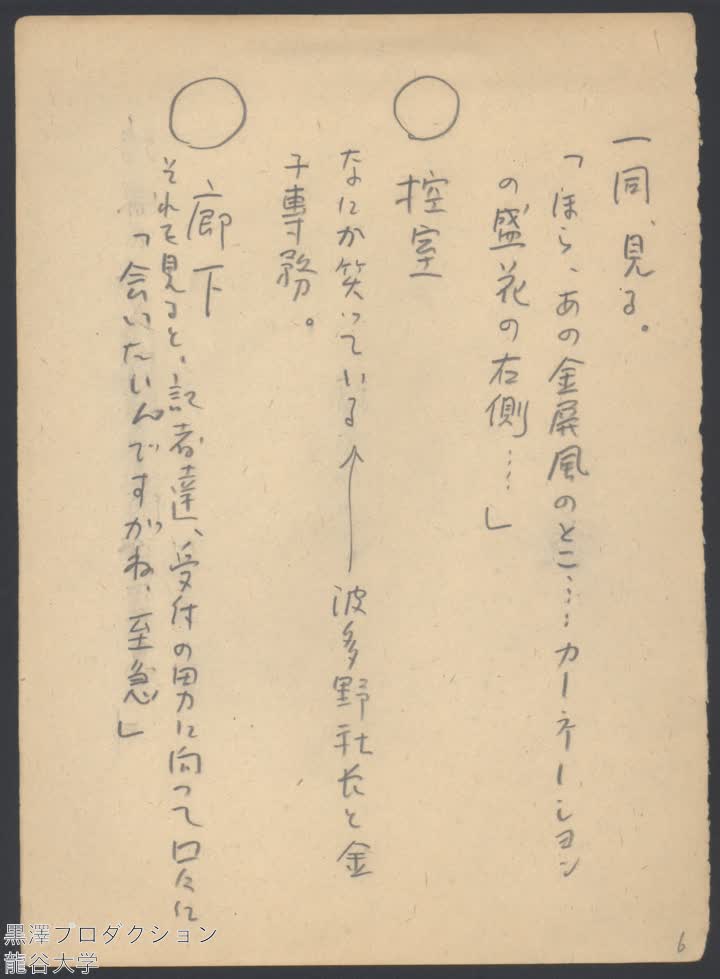 一同、見る。
「ほら、あの金屏風のとこ……カーネーション
の盛花の右側……」
○ 控室
なにか笑っている ← 波多野社長と金
子専務。
○ 廊下
それを見ると、記者達、受付の男に向って口々に
「会いたいんですがね、至急」
6
黒澤プロダクション
龍谷大学